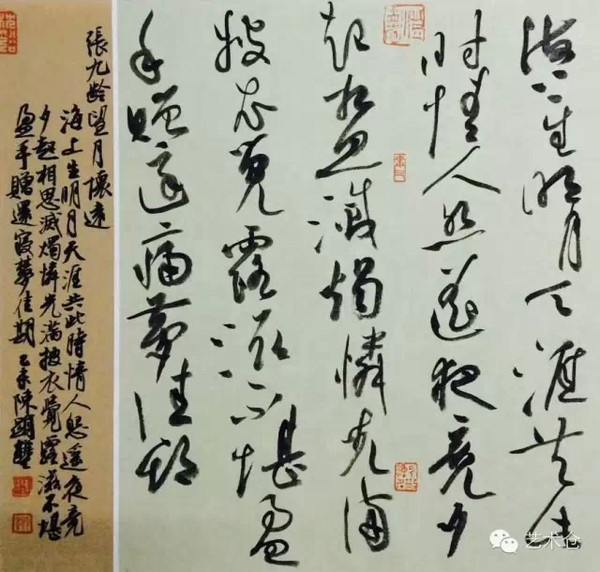 海上生明月天涯共此
时情人怨遥夜竟夕
起相思滅燭憐光滿
披衣覺露滋不堪盈
手贈還寢夢佳期
張九齡望月懷遠
海上生明月天涯共此時情人怨遥夜竟
夕起相思滅燭憐光滿披衣覺露滋不堪
盈手贈還寢夢佳期 乙未陳
艺术仓